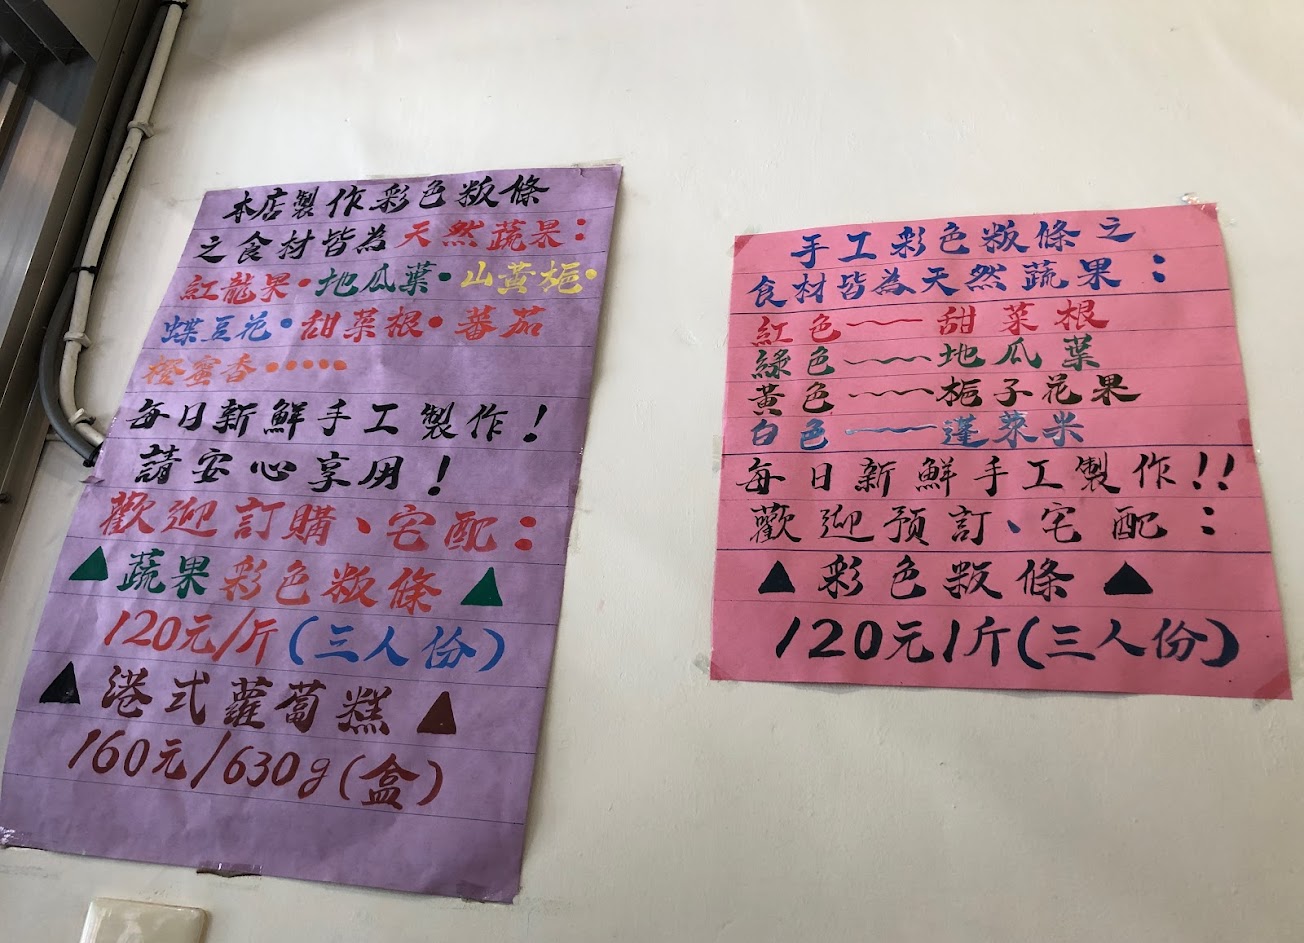 本店製作彩色粄條
之食材皆為天然蔬果：
紅龍果•地瓜葉•山黃梔•
蝶豆花•甜菜根•蕃茄
橙蜜香•••••
每日新鮮手工製作！
請安心享用！
歡迎訂購、宅配：
▲蔬果彩色粄條▲
120元/斤(三人份)
▲港式蘿蔔糕▲
160元/630g(盒)
手工彩色粄條之
食材皆為天然蔬果：
紅色——甜菜根
綠色——地瓜葉
黃色——梔子花果
白色——蓬萊米
每日新鮮手工製作!!
歡迎預訂、宅配：
▲彩色粄條▲
120元/斤(三人份)